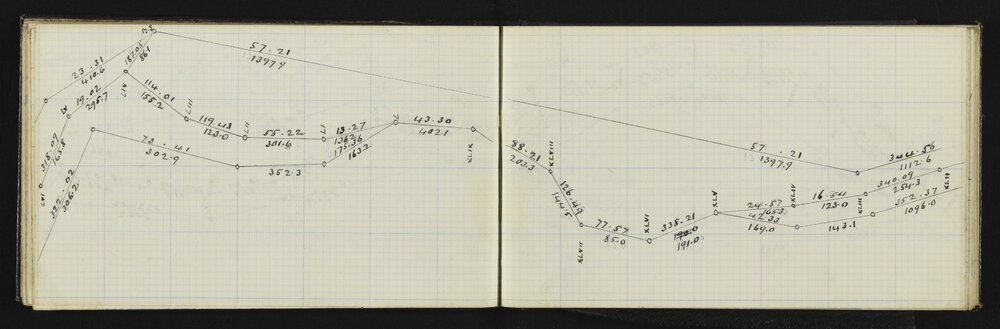 57.21
1397.9
23.31
410.6
157.05
861
LIV
19.02
295.7
LV
114.01
155.2
LIII
119.43
123.0
LII
55.22
301.6
LI
13.27
136.2
175.36
163.2
L
43.30
402.1
XLIX
73.41
302.9
352.3
318.09
65.8
LVI
322.02
306.2
88.21
203.3
XLVIII
126.49
144.5
XLVII
77.57
85.0
XLVI
338.21
190.0
191.0
XLV
57.21
1397.9
24.57
165.3
42.33
169.0
XLIV
16.54
123.0
143.1
XLIII
344.56
1112.6
340.09
254.3
352.37
1096.0
XLII